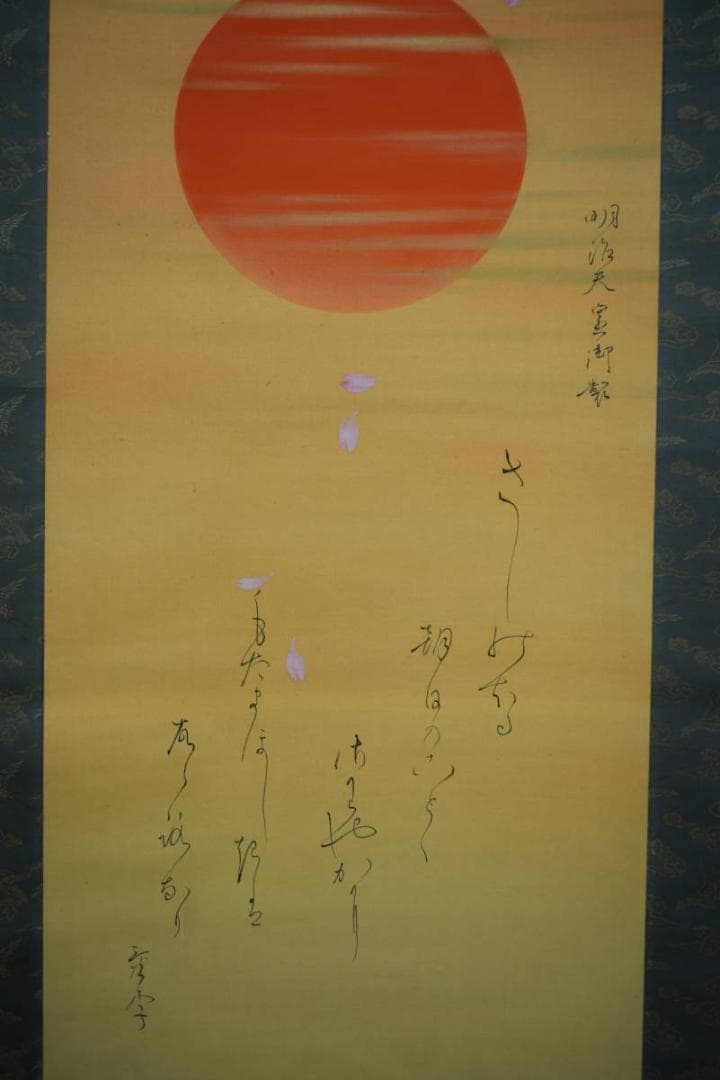 明治天皇御製
さしのぼる
朝日のごとく
さわやかに
もたまほしきは
こゝろなり